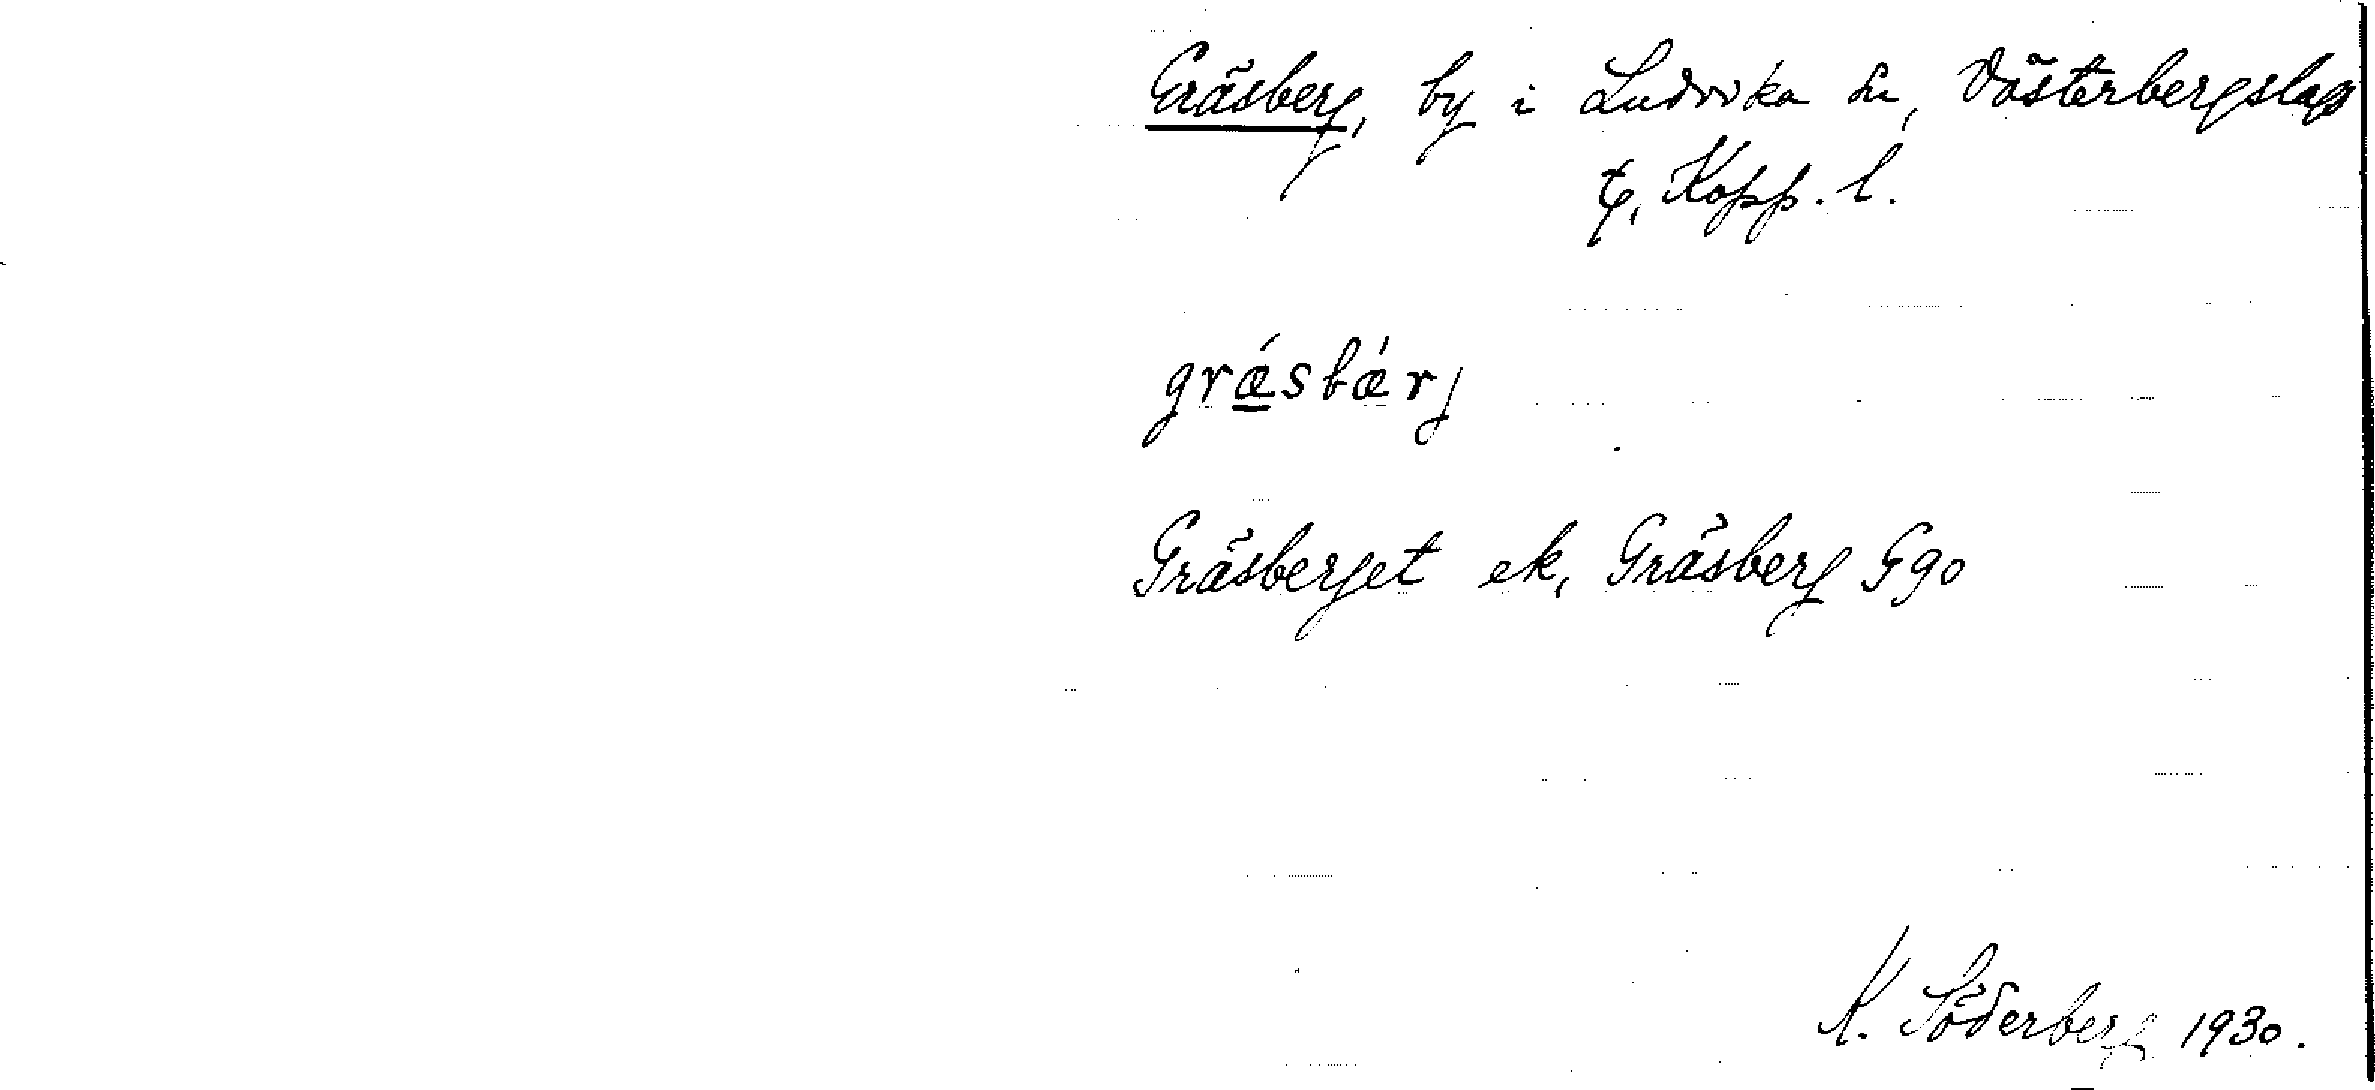 Gräsberg, by i Ludvika sn, Västerbergslags
tg, Kopp. l.
grǽsbǽrj
Gräsberget ek, Gräsberg Ggo
K. Söderberg 1930.